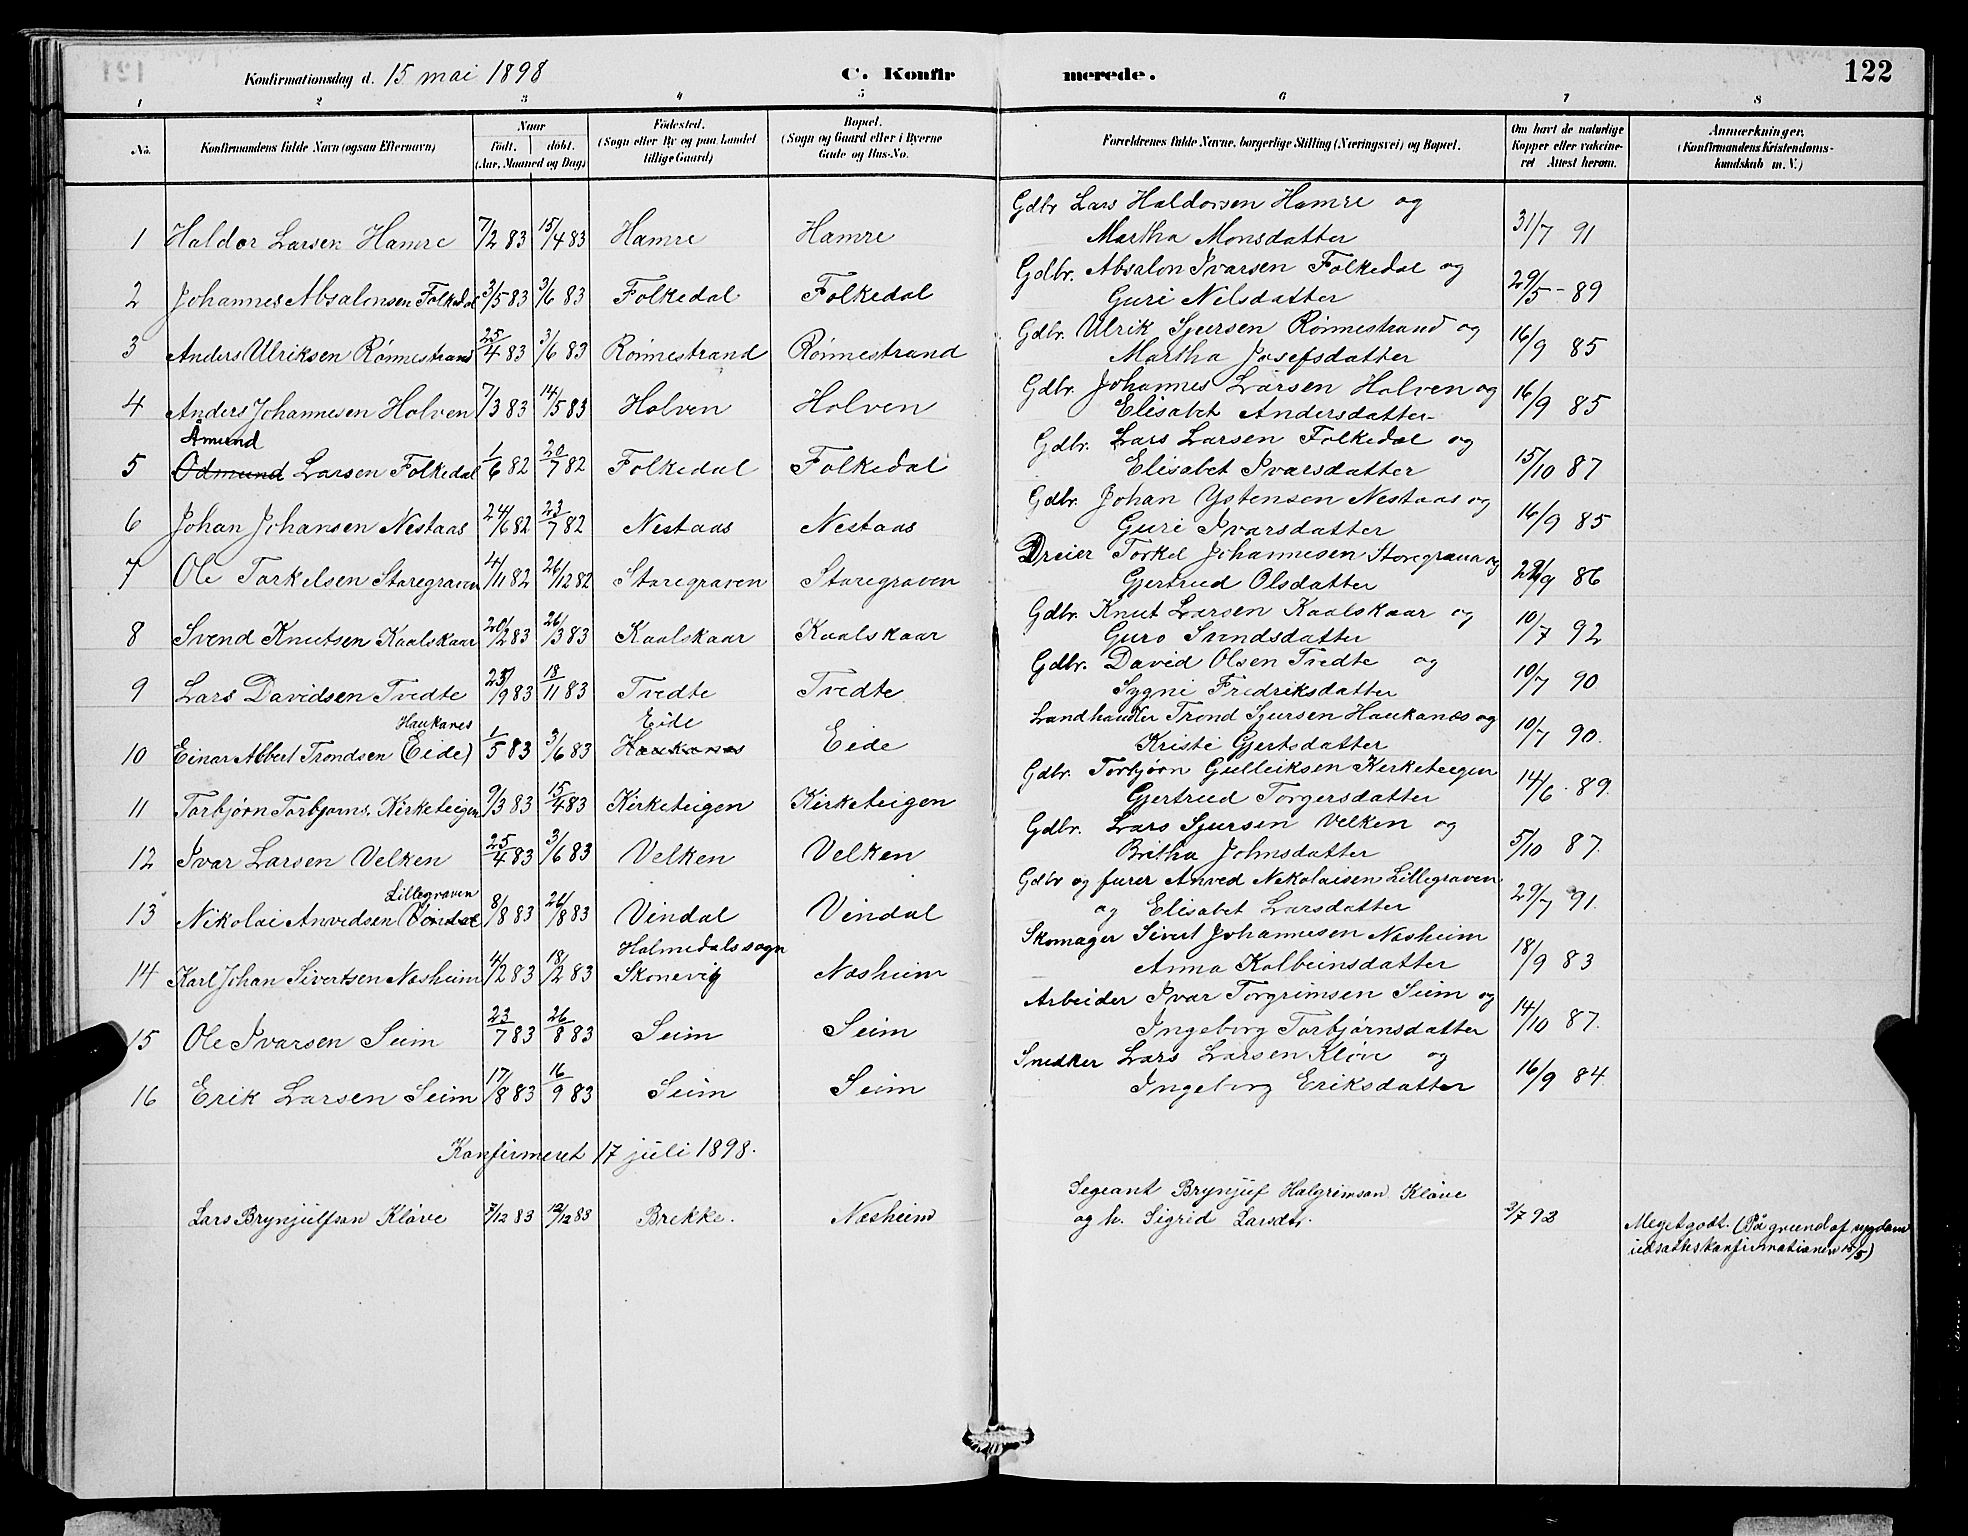 Konfirmationsdag d. 15 mai 1898 C. Konfirmerede. 122
1 2 3 4 5 6 7 8
No. Konfirmandens fulde Navn (ogsaa Efternavn) Naar født. døbt. (Aar, Maaned og Dag) Fødested. (Sogn eller By og paa Landet tillige Gaard) Bopæl. (Sogn og Gaard eller i Byerne Gade og Hus-No. Forældrenes fulde Navne, borgerlige Stilling (Næringsvei) og Bopæl. Om havt de naturlige Kopper eller vakcineret Attest herom. Anmærkninger. (Konfirmandens Kristendomskundskab m. V.)
Gdbr Lars Haldorsen Hamre og
1 Haldor Larsen Hamre 7/2 83 15/4 83 Hamre Hamre Martha Monsdatter 31/7 91
Gdbr. Absalon Ivarsen Folkedal og
2 Johannes Absalonsen Folkedal 3/5 83 3/6 83 Folkedal Folkedal Guri Nilsdatter 29/5 - 89
Gdbr. Ulrik Sjursen Rönnestrand og
3 Anders Ulriksen Rönnestrand 25/4 83 3/6 83 Rönnestrand Rönnestrand Martha Josefsdatter 16/9 85
Gdbr. Johannes Larsen Holven og
4 Anders Johannesen Holven 7/3 83 14/5 83 Holven Holven Elisabet Andersdatter 16/9 85
Åmund Gdbr. Lars Larsen Folkedal og
5 Odmund Larsen Folkedal 1/6 82 20/7 82 Folkedal Folkedal Elisabet Ivarsdatter 15/10 87
Gdbr. Johan Ystensen Nestaas og
6 Johan Johansen Nestaas 24/6 82 23/7 82 Nestaas Nestaas Guri Ivarsdatter 16/9 85
Dreier Torkel Johannesen Storegraven og
7 Ole Torkelsen Storegraven 4/11 82 26/12 82 Storegraven Storegraven Gjertrud Olsdatter 29/9 86
Gdbr. Knut Larsen Kaalskaar og
8 Svend Knutsen Kaalskaar 20/2 83 26/3 83 Kaalskaar Kaalskaar Guro Svendsdatter 10/7 92
Gdbr. David Olsen Tvedte og
9 Lars Davidsen Tvedte 23/9 83 18/11 83 Tvedte Tvedte Sygni Fredriksdatter 10/7 90
Haukanes Eide Landhandler Trond Sjursen Haukanæs og
10 Einar Albert Trondsen (Eide) 1/5 83 3/6 83 Haukanes Eide Kristi Gjertsdatter 10/7 90.
Gdbr. Torbjørn Gulleiksen Kirketeigen
11 Torbjørn Torbjørns. Kirketeigen 9/3 83 15/4 83 Kirketeigen Kirketeigen Gjertrud Torgersdatter 14/6 89.
Gdbr. Lars Sjursen Velken og
12 Ivar Larsen Velken 25/4 83 3/6 83 Velken Velken Britha Johnsdatter 5/10 87
Lillegraven Gdbr og furer Anved Nikolaisen Lillegraven
13 Nikolai Anvedsen (Vindal 8/8 83 26/8 83 Vindal Vindal og Elisabet Larsdatter 29/7 91.
Holmedals sogn Skomager Sivert Johannesen Næsheim
14 Karl Johan Sivertsen Næsheim 4/2 83 18/2 83 Skonevig Næsheim Anna Kolbeinsdatter 18/9 83
Arbeider Ivar Torgrimsen Seim og
15 Ole Ivarsen Seim 23/7 83 26/8 83 Seim Seim Ingeborg Torbjørnsdatter 14/10 87.
Snedker Lars Larsen Kløve og
16 Erik Larsen Seim 17/8 83 16/9 83 Seim Seim Ingeborg Eriksdatter 16/9 84
Konfirmeret 17 juli 1898.
Segeant Brynjulf Halgrimson Kløve
Lars Brynjulfson Kløve 7/12 83 12/12 83 Brekke. Næsheim og h. Sigrid Larsdtr. 2/7 92 Meget godt. (På grund af sygdom
udsattes konfirmationen 15/5)